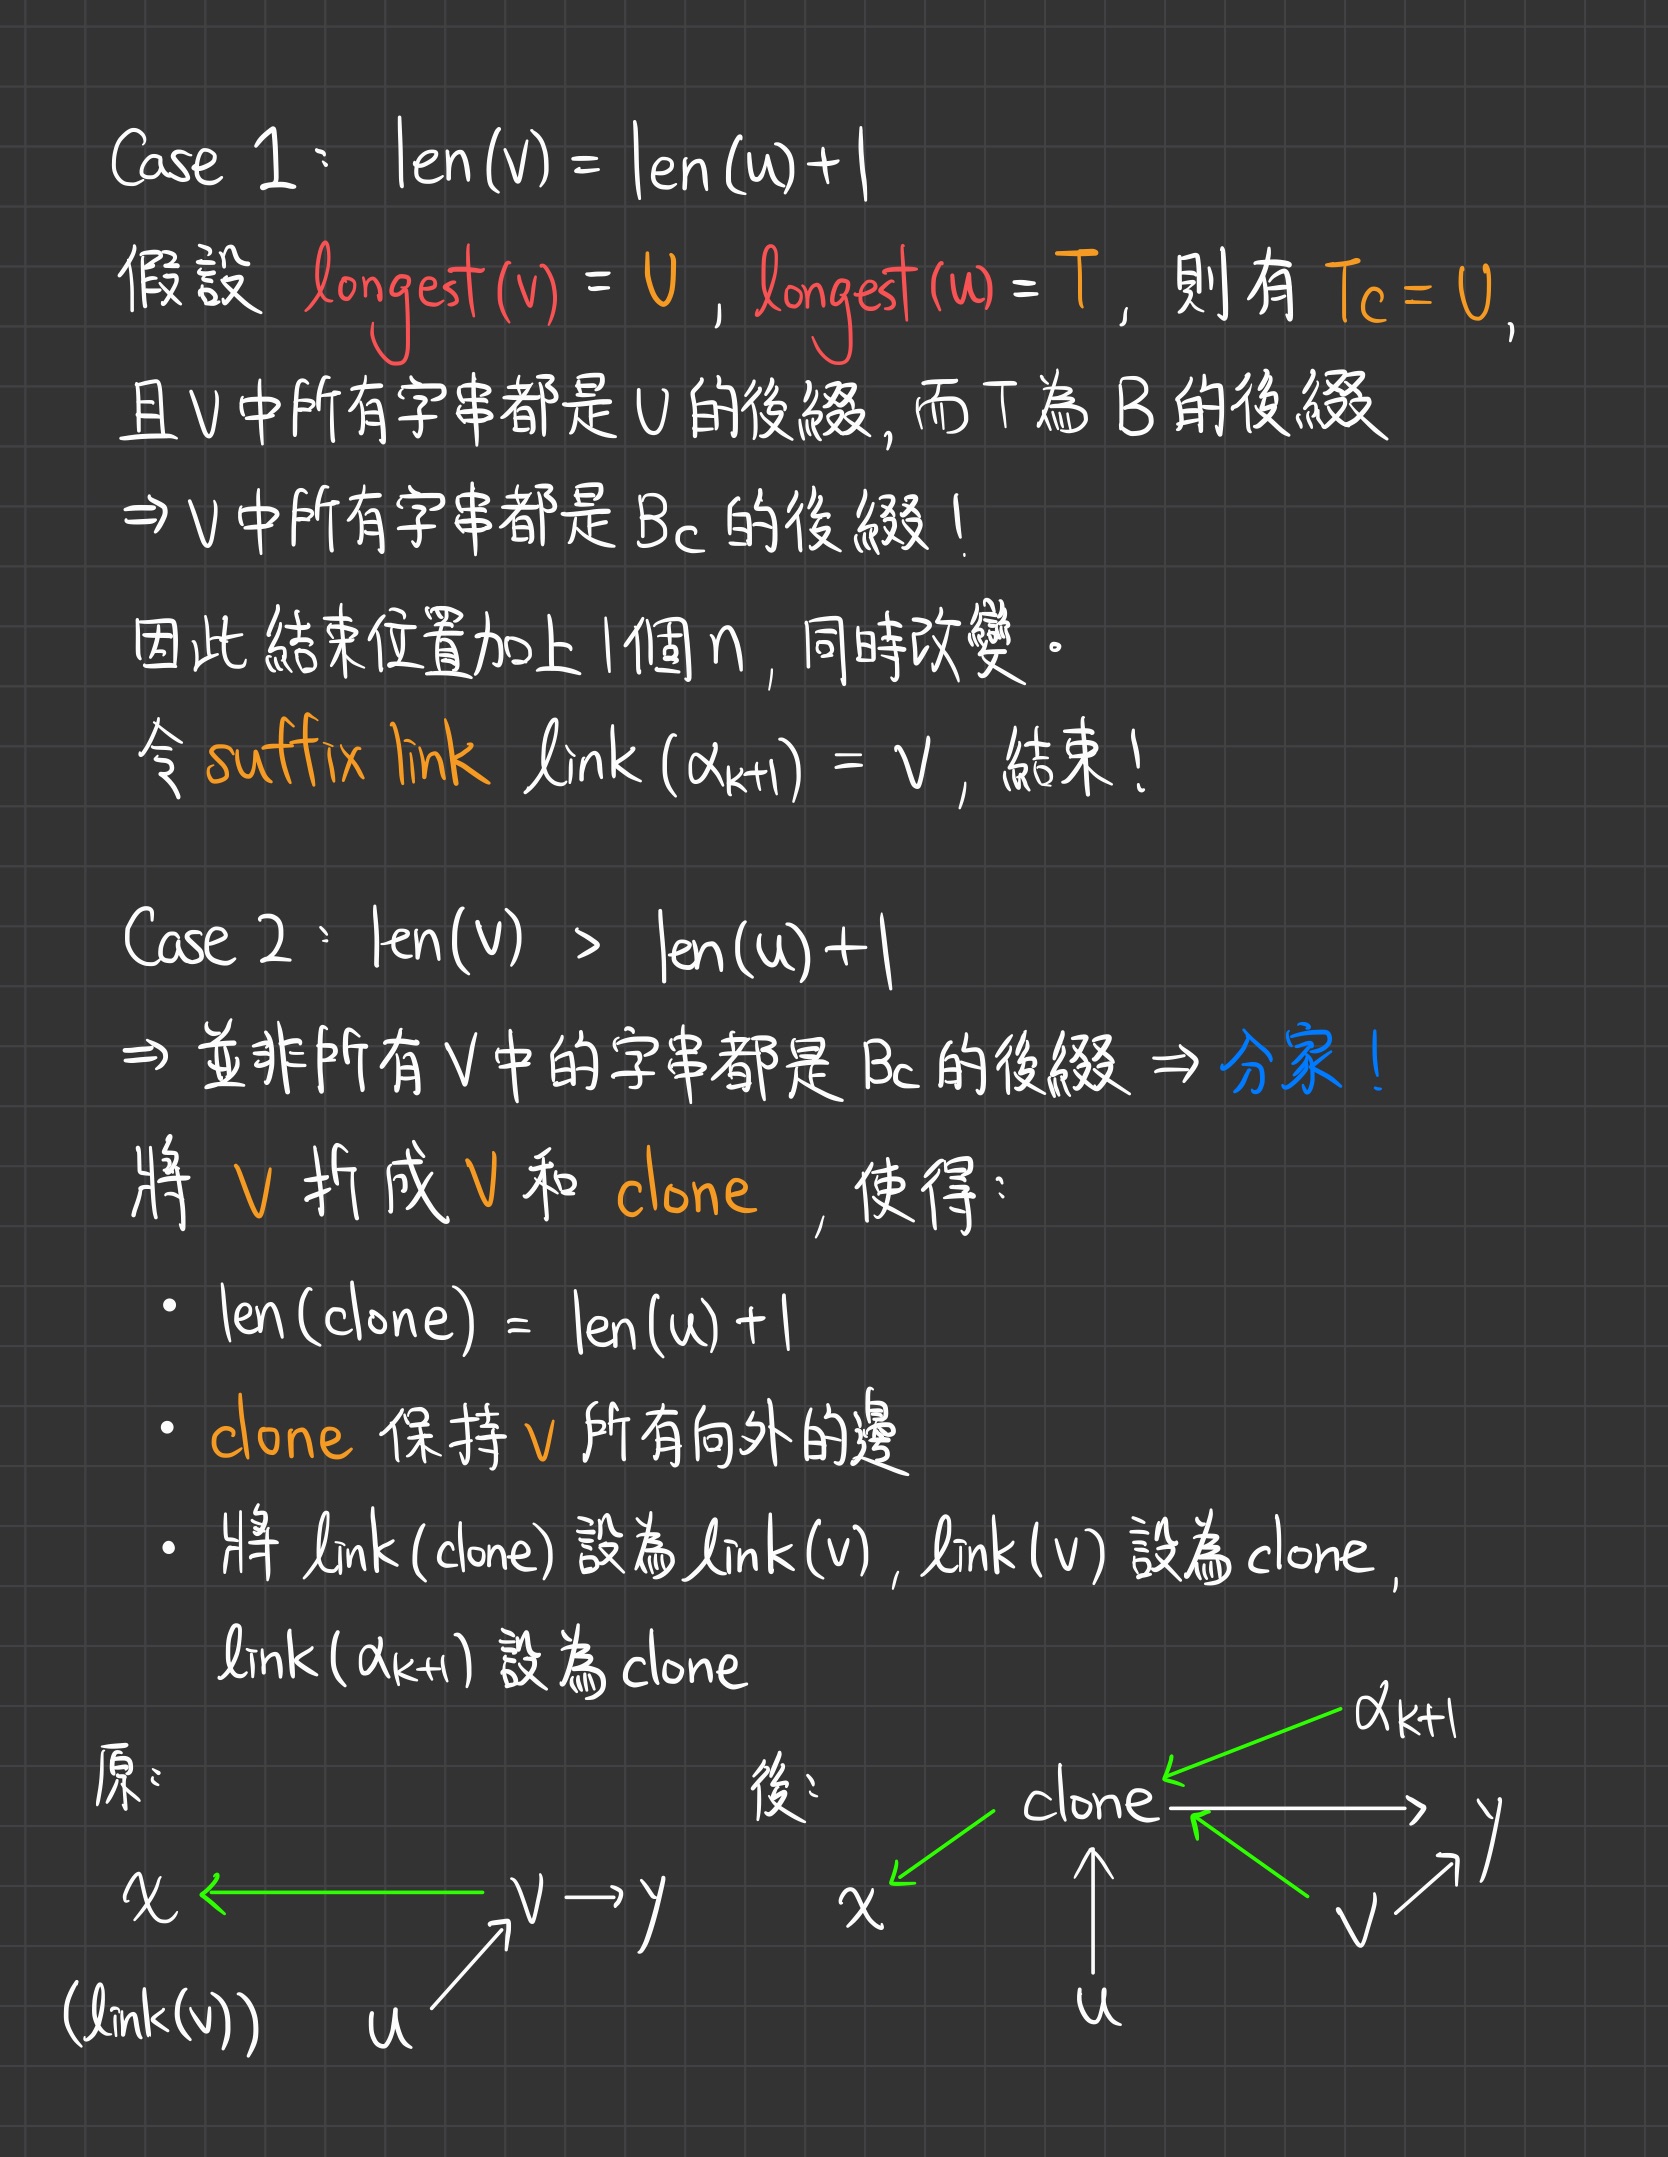 Case 1: len(v) = len(u)+1
假設 longest(v) = U, longest(u) = T, 則有 Tc = U,
且 V 中所有字串都是 U 的後綴, 而 T 為 B 的後綴
⇒ V 中所有字串都是 Bc 的後綴!
因此結束位置加上1個 n, 同時改變。
令 suffix link link(α_{k+1}) = V, 結束!
Case 2: len(v) > len(u)+1
⇒ 並非所有 V 中的字串都是 Bc 的後綴 ⇒ 分家!
將 V 折成 V 和 clone, 使得:
• len(clone) = len(u)+1
• clone 保持 v 所有向外的邊
• 將 link(clone) 設為 link(v), link(v) 設為 clone,
link(α_{k+1}) 設為 clone
原:
x ← V → y
(link(v)) u
後:
α_{k+1}
clone → y
x V
u